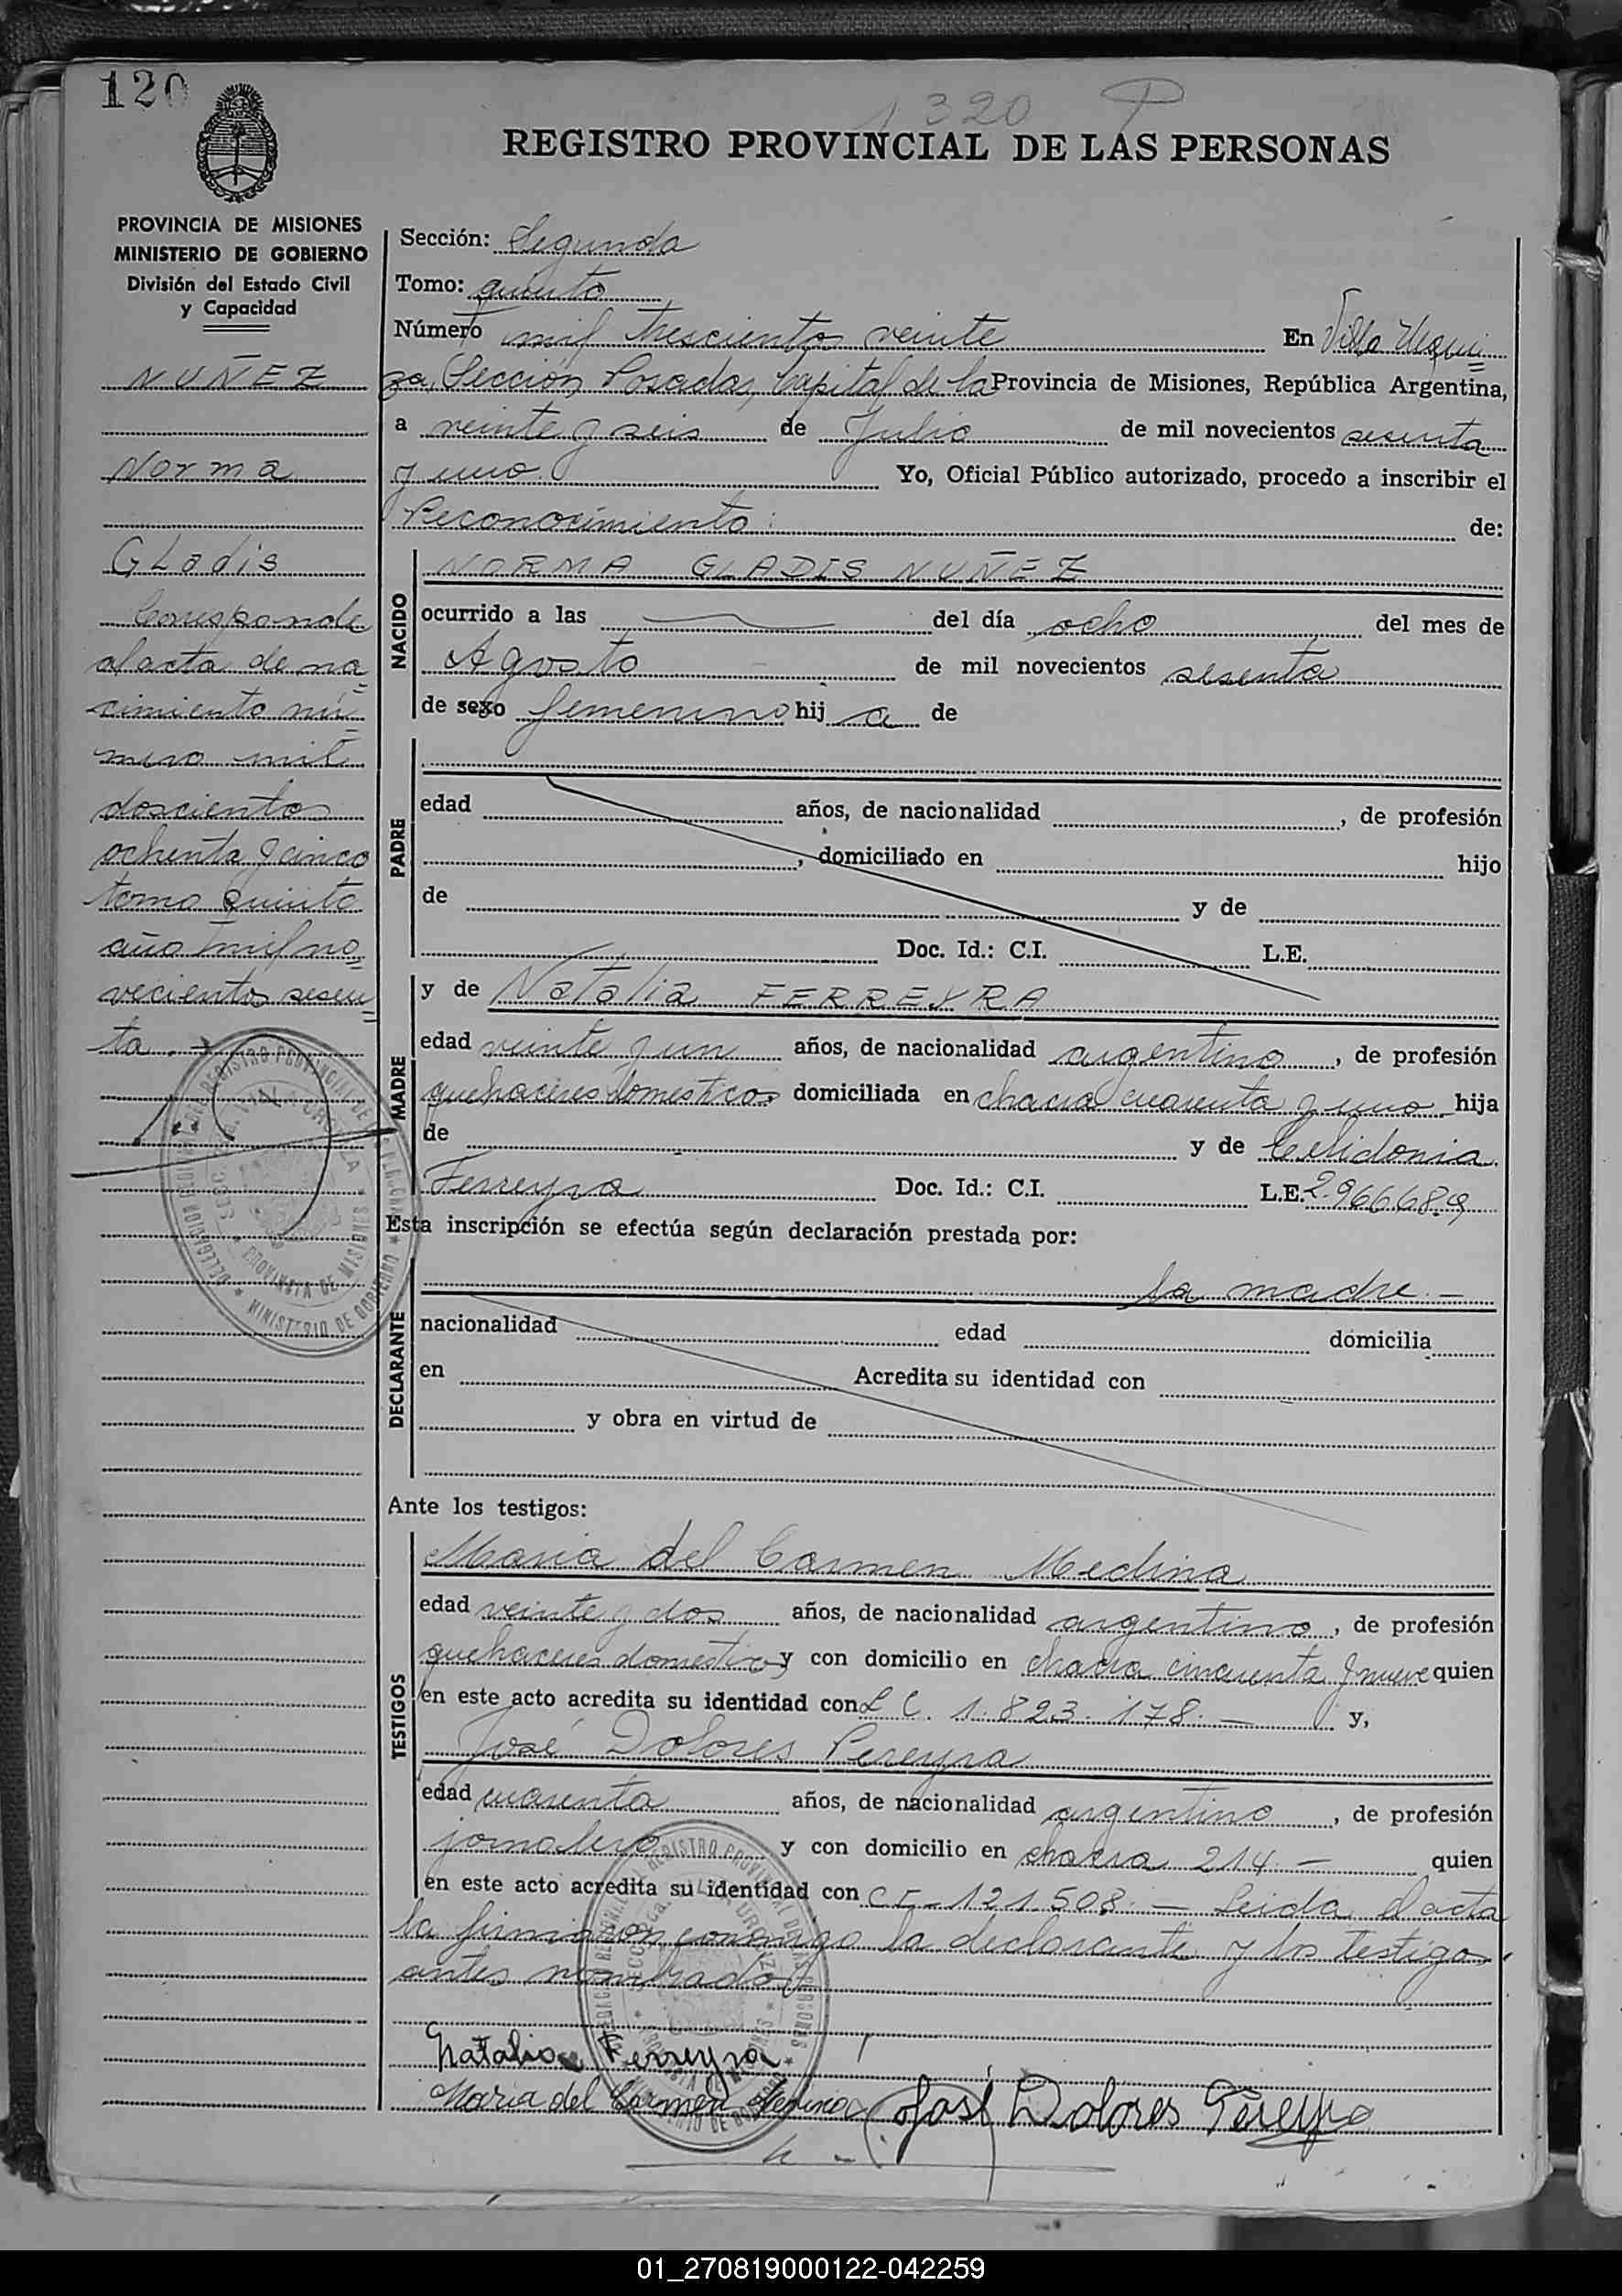 120
1320 P
REGISTRO PROVINCIAL DE LAS PERSONAS
PROVINCIA DE MISIONES
MINISTERIO DE GOBIERNO
División del Estado Civil
y Capacidad
NUÑEZ
Norma
Gladis
Corresponde
al acta de na
cimiento nú
mero mil
doscientos
ochenta y cinco
tomo quinto
año mil no
vecientos sesen
ta.
Sección: Segunda
Tomo: quinto
Número mil trescientos veinte En Villa Urqui
za, Sección Posadas, Capital de la Provincia de Misiones, República Argentina,
a veinte y seis de Julio de mil novecientos sesenta
y uno. Yo, Oficial Público autorizado, procedo a inscribir el
Reconocimiento: de:
NACIDO
NORMA GLADIS NUÑEZ
ocurrido a las del día ocho del mes de
Agosto de mil novecientos sesenta
de sexo femenino hij a de
PADRE
edad años, de nacionalidad , de profesión
, domiciliado en hijo
de y de
Doc. Id.: C.I. L.E.
MADRE
y de Natalia FERREYRA
edad veinte y un años, de nacionalidad argentina, de profesión
quehaceres domesticos domiciliada en chacra cuarenta y uno hija
de y de Celidonia
Ferreyra Doc. Id.: C.I. L.E. 2.966689
Esta inscripción se efectúa según declaración prestada por:
DECLARANTE
la madre.-
nacionalidad edad domicilia
en Acredita su identidad con
y obra en virtud de
Ante los testigos:
TESTIGOS
Maria del Carmen Medina
edad veinte y dos años, de nacionalidad argentina, de profesión
quehaceres domestico y con domicilio en chacra cincuenta y nueve quien
en este acto acredita su identidad con L C. 1.823.178.- y,
José Dolores Pereyra
edad cuarenta años, de nacionalidad argentino, de profesión
jornalero y con domicilio en chacra 214.- quien
en este acto acredita su identidad con C I- 121.508.- Leida el acta
la firmaron conmigo la declarante y los testigos
antes nombrados
Natalia Ferreyra
Maria del Carmen Medina José Dolores Pereyra
01_270819000122-042259